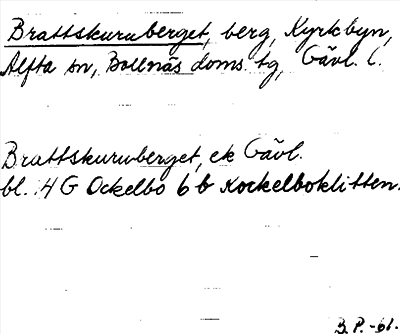 Brattskuruberget, berg, Kyrkbyn,
Alfta sn, Bollnäs doms. tg, Gävl. l.
Brattskuruberget, ek Gävl.
bl. 4 G Ockelbo 6 b Kockelboklitten.
B.P. -61.